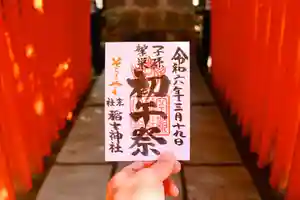 令和六年三月十九日
子孫
繁栄
初午祭
稲荷神社